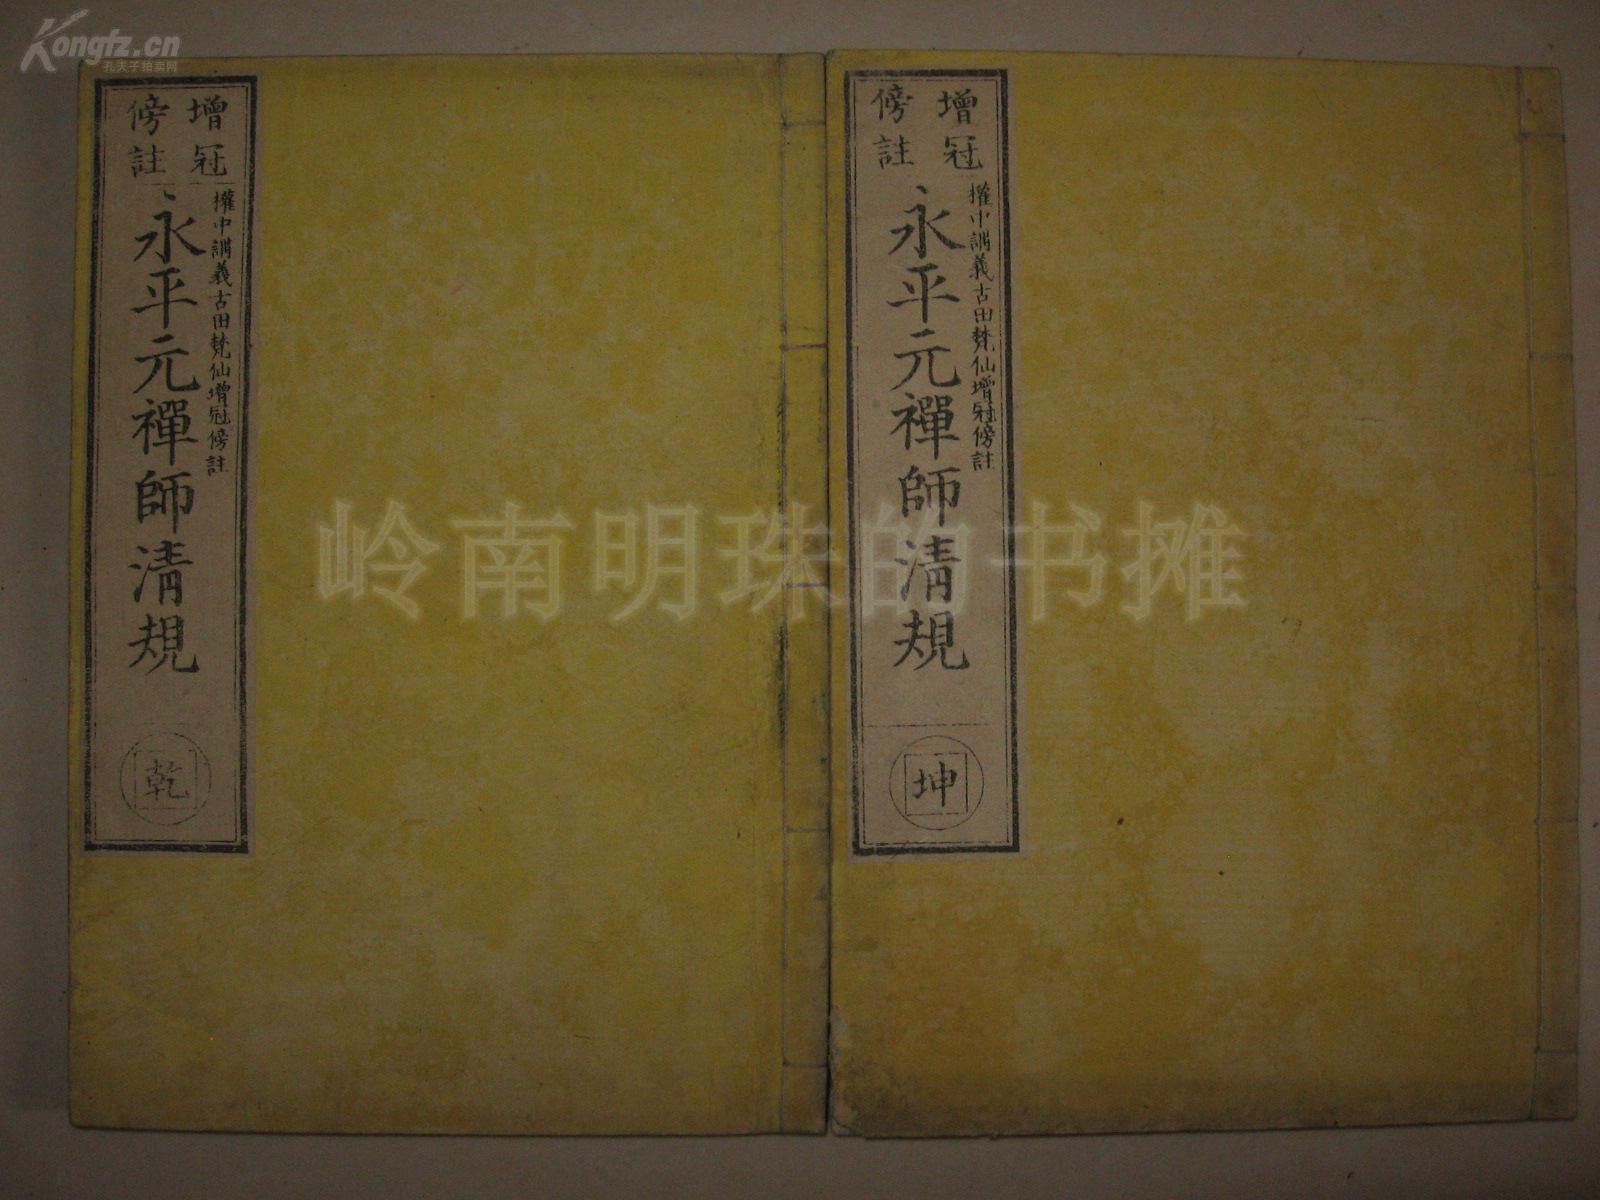 Kongfz.cn
孔夫子拍卖网
增冠
傍註
權中訓義古田梵仙增冠傍註
永平元禪師清規
乾
增冠
傍註
權中訓義古田梵仙增冠傍註
永平元禪師清規
坤
岭南明珠的书摊